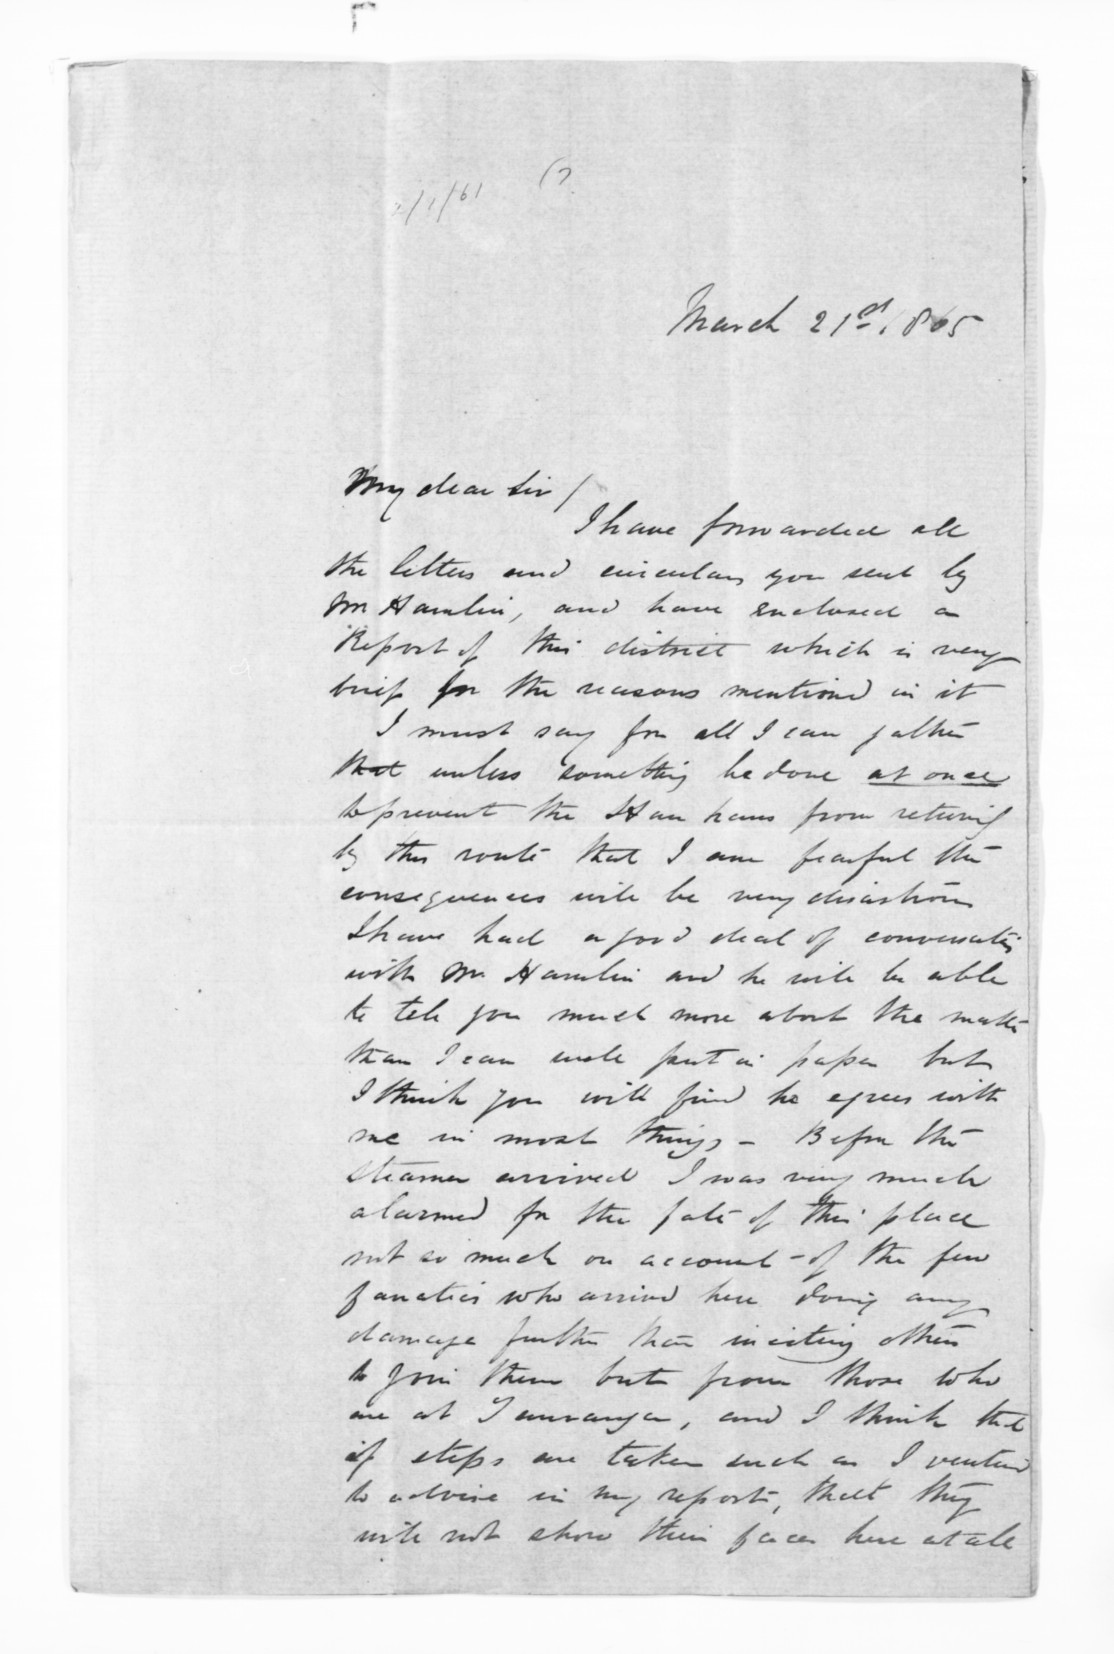 2/1/61 (7
March 21st, 1865
My dear Sir/
I have forwarded all
the letters and circulars you sent by
Mr Hamlin, and have enclosed a
Report of this district which is very
brief for the reasons mentioned in it
I must say for all I can gather
that unless something be done at once
to prevent the Hau haus from returning
by this route that I am fearful the
consequences will be very disastrous
I have had a good deal of conversation
with Mr Hamlin and he will be able
to tell you much more about the matter
than I can well put on paper but
I think you will find he agrees with
me in most things - Before the
steamer arrived I was very much
alarmed for the fate of this place
not so much on account of the few
fanatics who arrived here doing any
damage further than inciting others
to join them but from those who
are at Tauranga, and I think that
if steps are taken such as I venture
to advise in my report, that they
will not show their faces here at all